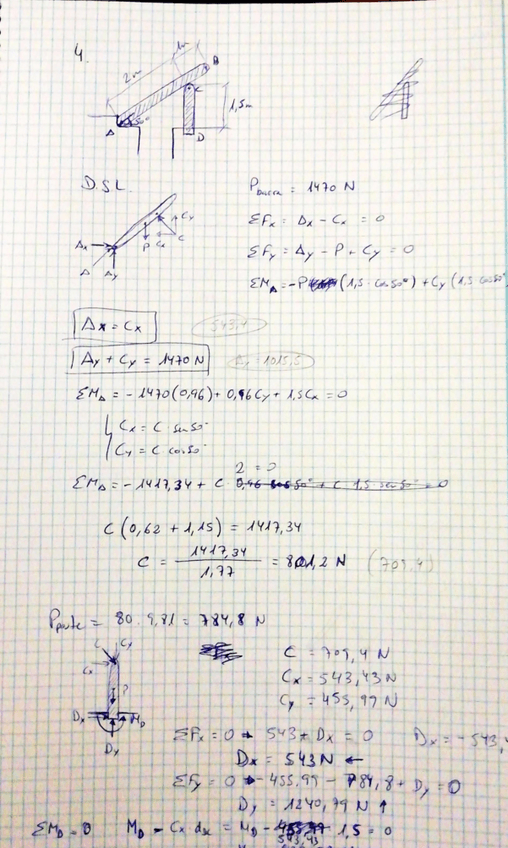 4.
1m
2m
B
C
1,5m
A
D
D.S.L.
P barra = 1470 N
Cy
ΣFx = Ax - Cx = 0
Ax
P Cx C
ΣFy = Ay - P + Cy = 0
A Ay
ΣMA = -P (1,5 · cos50°) + Cy (1,5 cos50°
Ax = Cx
543,4
Ay + Cy = 1470 N
= 1015,5
ΣMA = -1470(0,96) + 0,96Cy + 1,5Cx = 0
Cx = C · sen50°
Cy = C · cos50°
2 = 0
ΣMA = -1417,34 + C · 0,96 cos 50° + C · 1,5 · sen50° = 0
C (0,62 + 1,15) = 1417,34
C = 1417,34 / 1,77 = 801,2 N (709,4)
Pposte = 80 · 9,81 = 784,8 N
C Cy
Cx
C = 709,4 N
Cx = 543,43 N
Cy = 455,99 N
P
Dx MD
Dy
ΣFx = 0 → 543 + Dx = 0 Dx = -543,4
Dx = 543 N ←
ΣFy = 0 → -455,99 - 784,8 + Dy = 0
Dy = 1240,79 N ↑
ΣMD = 0 MD - Cx · dx = MD - 1,5 = 0
543,43